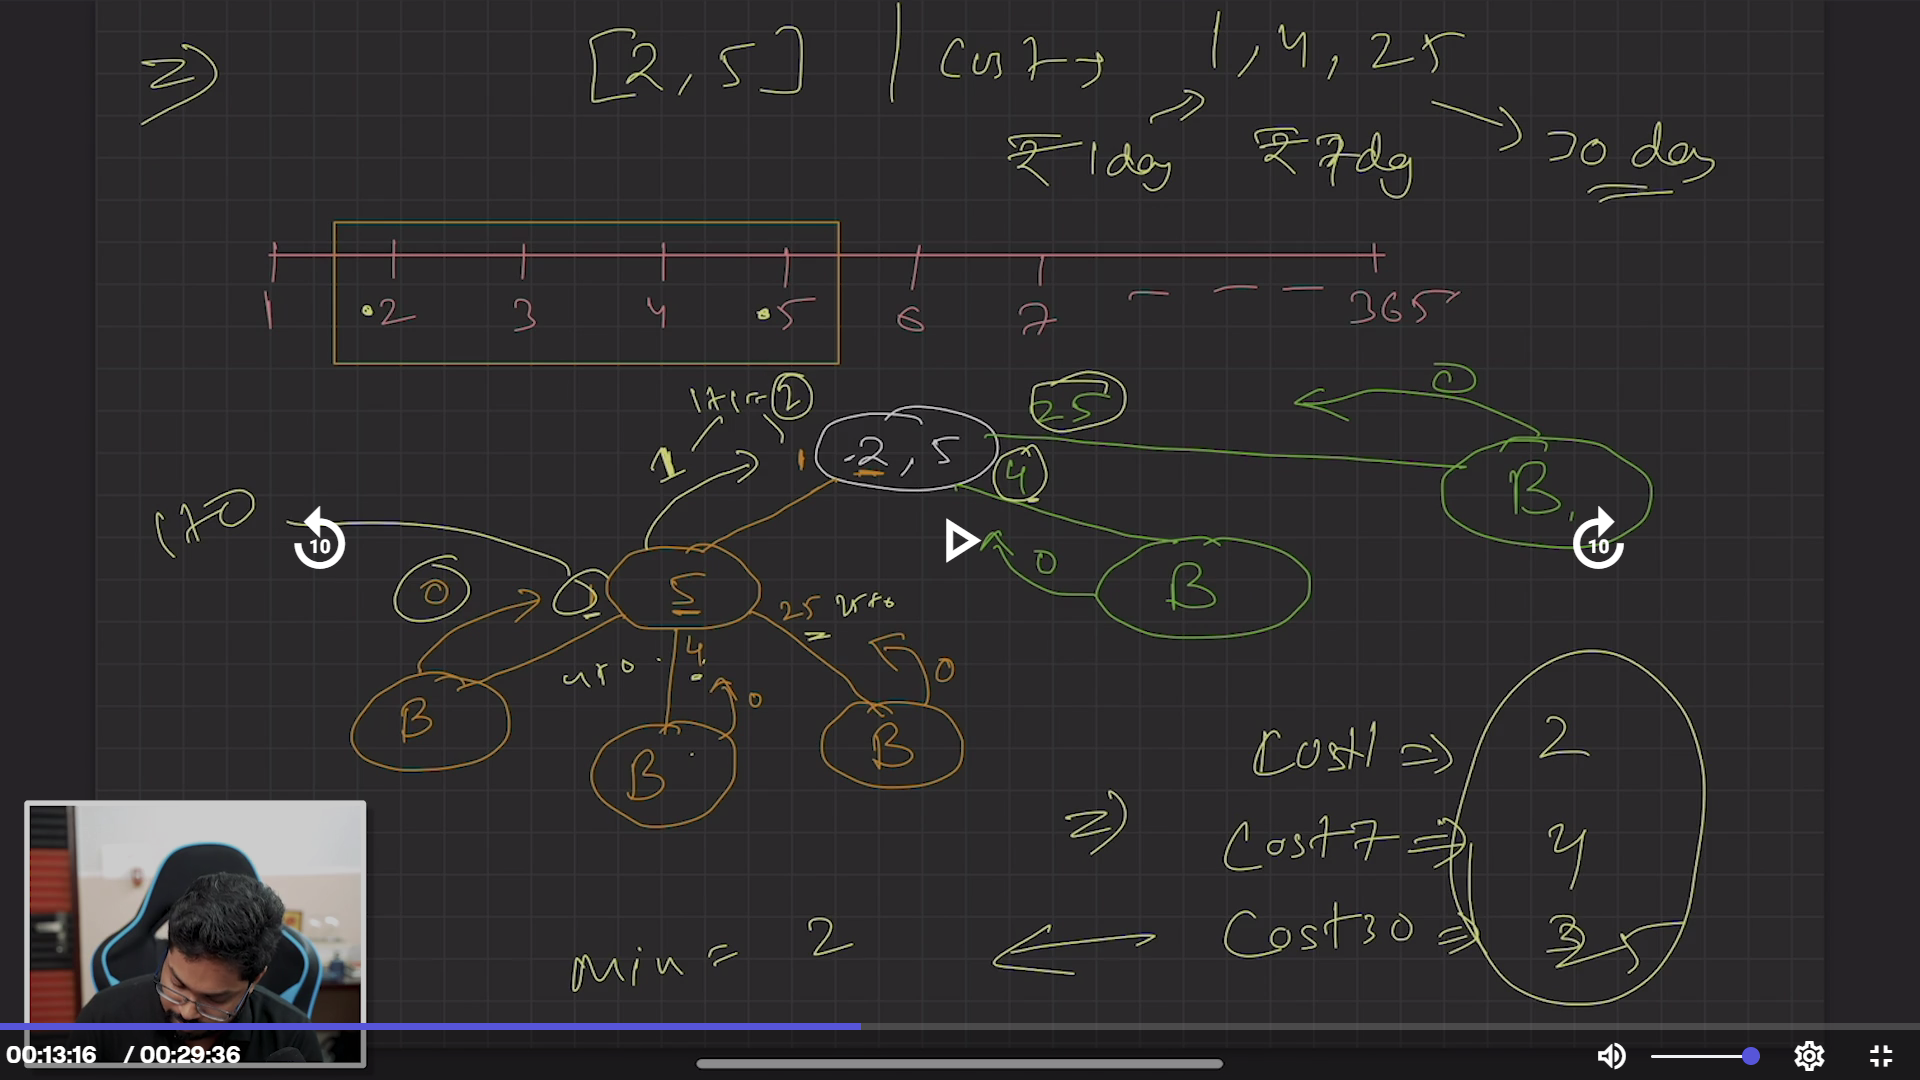 =>
[2, 5] | Cost → 1, 4, 25
₹ 1 day ₹ 7 day 30 day
1 2 3 4 5 6 7 - - - 365
1+1=2
25
0
1
1
2, 5
4
B
1+0
0
1
5
25 25+0
0
B
4+0
4
0
0
B
B
B
Cost1 => 2
=>
Cost7 => 4
Cost30 => 25
min = 2
10
10
00:13:16 / 00:29:36